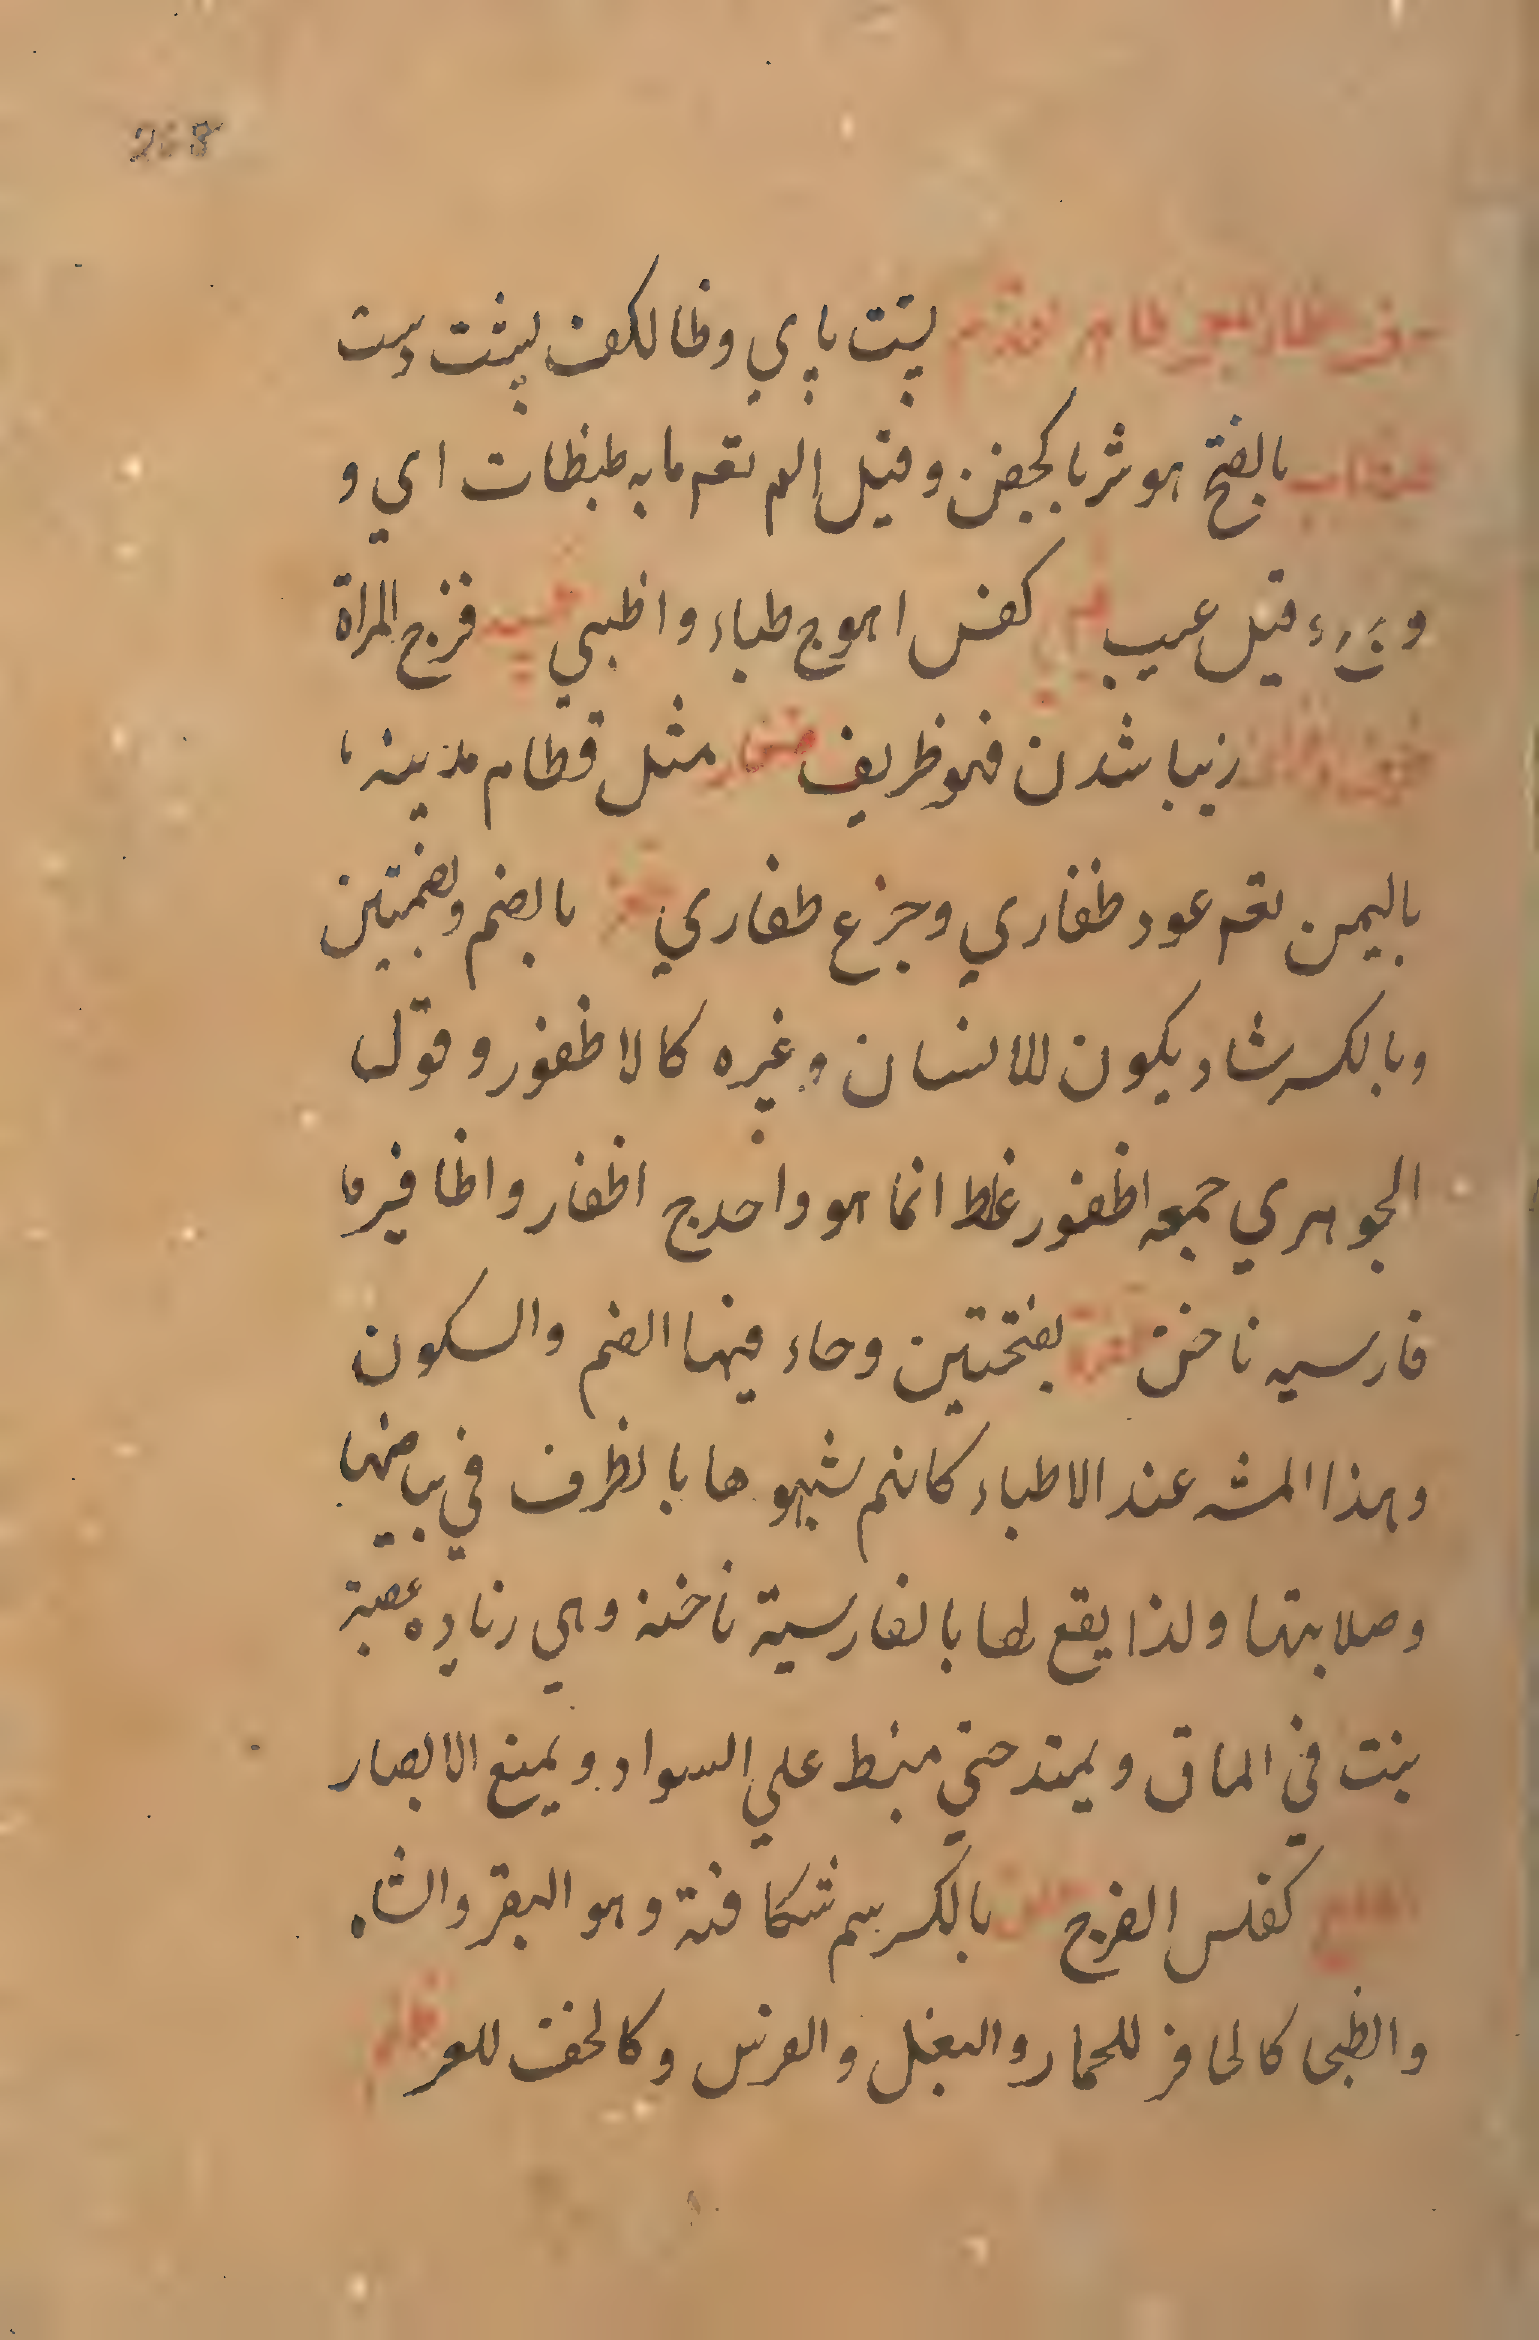 268
حرف الظاء المعجمة ظاهر القدم پشت پاي وظا لكف پشت دست
ظبظاب بالفتح هو ثر بالجفن وقيل الم يقم مابه ظبظات اي و
وقيل عيب ظبي كفلس اهو ج ظباء واظبي ظبيه فرج المراة
زيبا شدن فهو ظريف ظفار مثل قطام مدينة
باليمن يقم عود ظفاري وجزع ظفاري ظفر بالضم وبضمتين
وبالكسر شاد يكون للانسان وغيره كالاظفور وقول
الجوهري جمعه اظفور غلط انما هو واحد ج اظفار واظافير
فارسيه ناخن ظفرة بفتحتين وجاء فيها الضم والسكون
وهذا المشه عند الاطباء كانهم شبهوها بالظرف في بياضها
وصلابتها ولذا يقع لها بالفارسية ناخنه وهي زياده عصبة
ينبت في الماق ويمتد حتي منبط علي السواد ويمنع الابصار
كفلس الفرج ظلف بالكسر سم شكافته وهو البقر والشاه
والظبي كالحافر للحمار والبغل والفرس وكالخف للعر